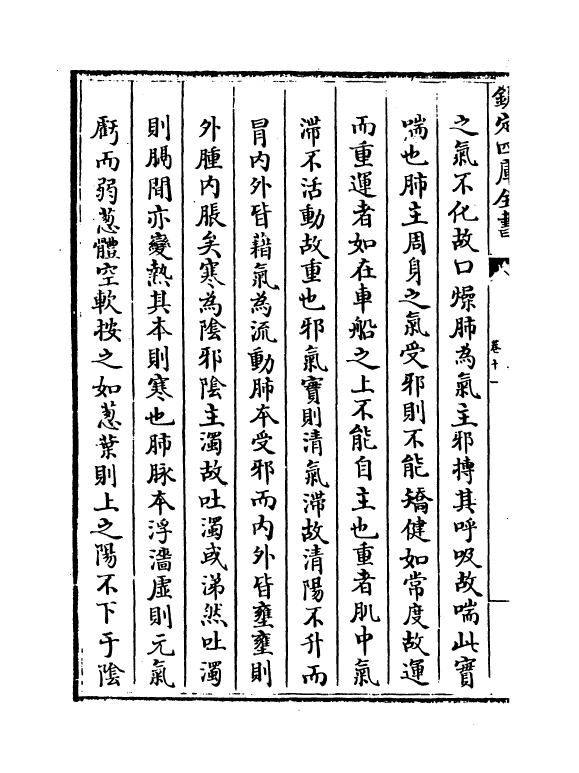 欽定四庫全書
卷十一
之氣不化故口燥肺為氣主邪搏其呼吸故喘此實
喘也肺主周身之氣受邪則不能矯健如常度故運
而重運者如在車船之上不能自主也重者肌中氣
滞不活動故重也邪氣實則清氣滞故清陽不升而
冐内外皆藉氣為流動肺本受邪而内外皆壅壅則
外腫内脹矣寒為陰邪陰主濁故吐濁或涕然吐濁
則膈間亦變熱其本則寒也肺脉本浮濇虚則元氣
虧而弱葱體空軟按之如葱葉則上之陽不下于陰